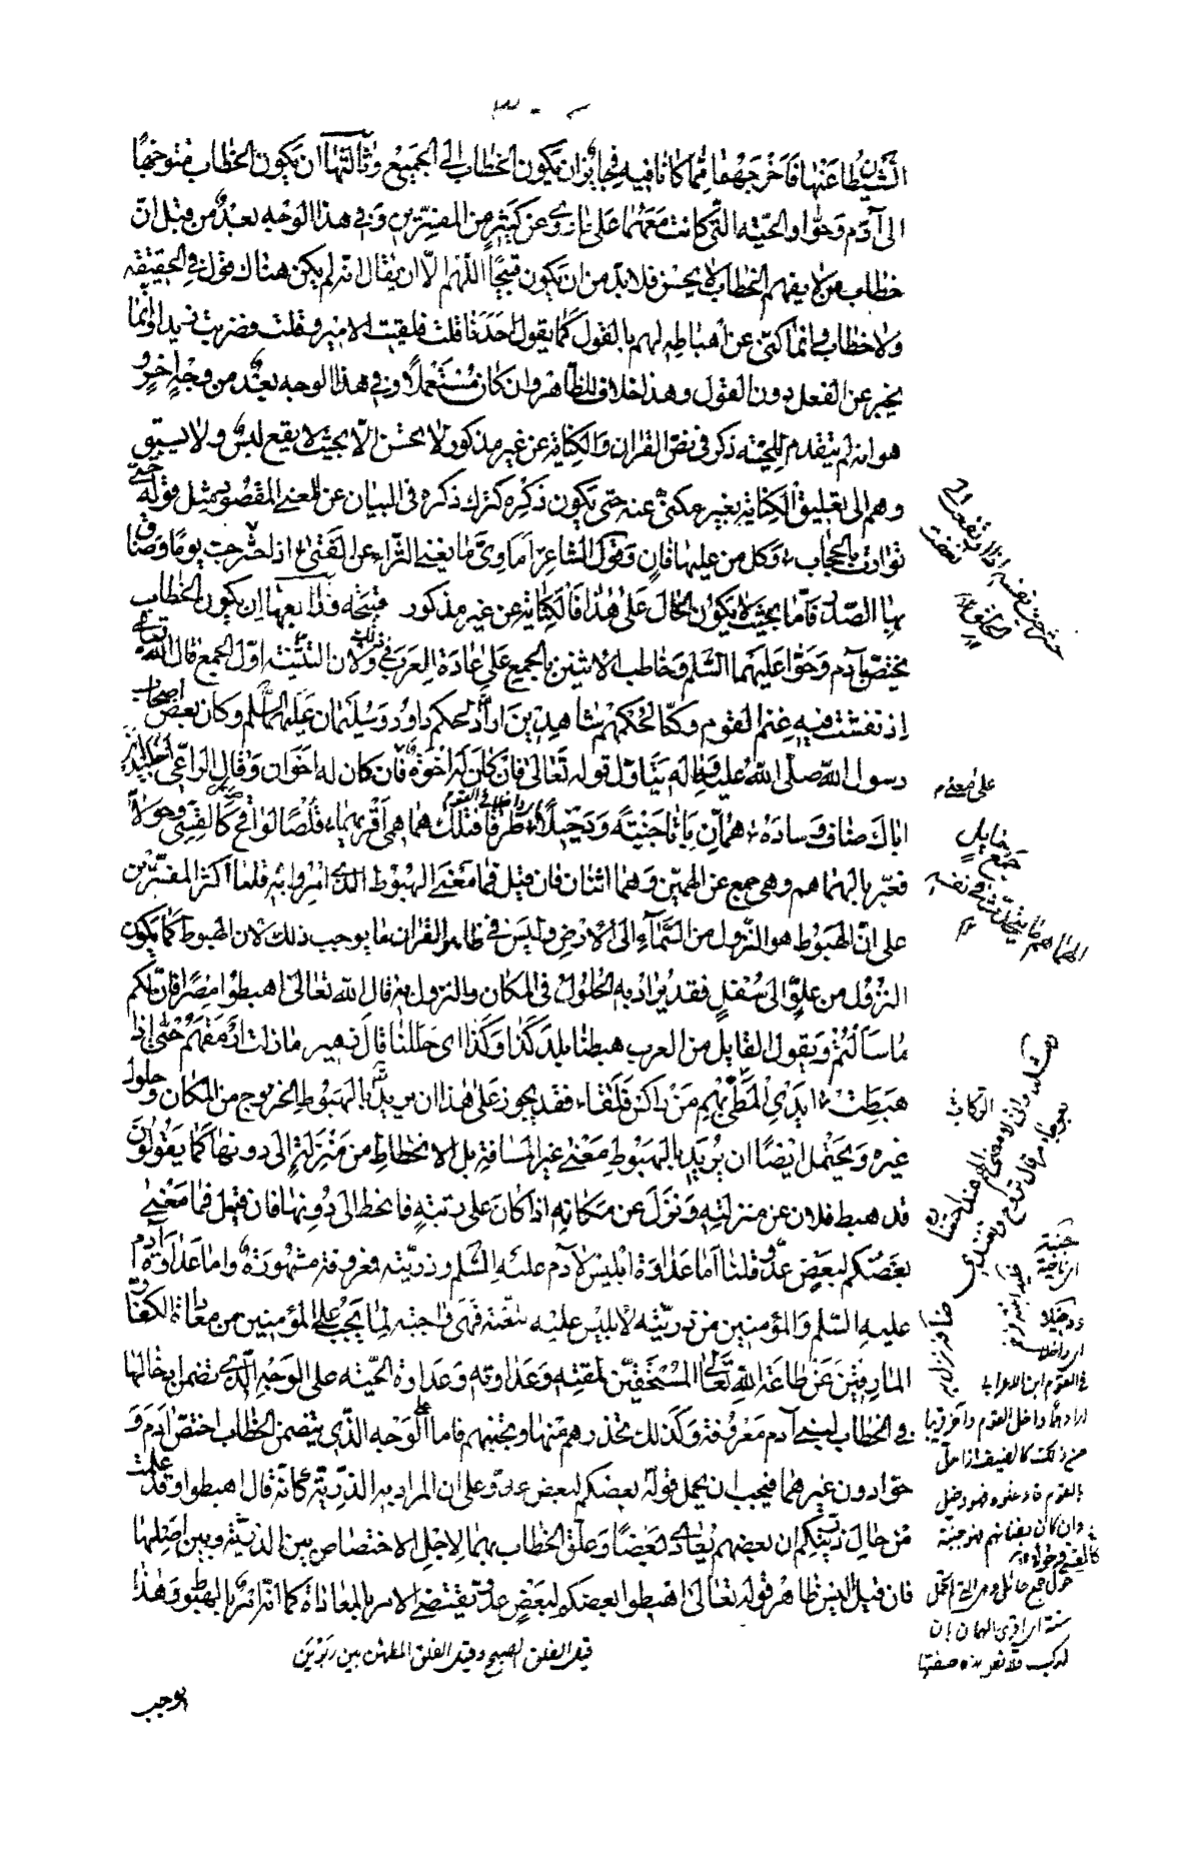 الشيطان عنها فاخرجهما مما كانا فيه فجائز ان يكون الخطاب الى الجميع وثالثها ان يكون الخطاب متوجها
الى آدم وحوا والحية التي كانت معهما على ما روى عن كثير من المفسرين وفي هذا الوجه بعد من قبل ان
خطاب من لا يفهم الخطاب لا يحسن فلا بد من ان يكون قبيحا اللهم الا ان يقال انه لم يكن هناك قول في الحقيقة
ولا خطاب وانما كنى عن اهباطه لهم بالقول كما يقول احدنا قلت فلقيت الامير وقلت فضربت زيدا وانما
يخبر عن الفعل دون القول وهذا خلاف الظاهر وان كان مستعملا وفي هذا الوجه بعد من وجه اخر
هو انه لم يتقدم للحية ذكر في نص القران والكناية عن غير مذكور لا يحسن الا بحيث لا يقع لبس ولا يسبق
وهم الى تعليق الكناية بغير مكنى عنه حتى يكون ذكره كترك ذكره في البيان عن المعنى المقصود مثل قوله حتى
توارت بالحجاب وكل من عليها فان وقول الشاعر اماوى ما يغنى الثراء عن الفتى اذا حشرجت يوما وضاق
بها الصدر فاما بحيث لا يكون الحال على هذا فالكناية عن غير مذكور قبيحة ورابعها ان يكون الخطاب
يختص آدم وحوا عليهما السلم وخاطب الاثنين بالجمع على عادة العرب في ذلك ولان التثنية اول الجمع قال الله تعالى
اذ نفشت فيه غنم القوم وكنا لحكمهم شاهدين اراد لحكم داود وسليمان عليهما السلم وكان بعض اصحاب
رسول الله صلى الله عليه واله يتاول قوله تعالى فان كان له اخوة فان كان له اخوان وقال الراعى اخليد ان
اباك ضاف وساده همان باتا جنبة ودخيلا طرقا فتلك هماهمى اقريهما قلصا لواقح كالقسى وحولا
فعبر بالهماهم وهى جمع عن الهمين وهما اثنان فان قيل فما معنى الهبوط الذى امروا به قلنا اكثر المفسرين
على ان الهبوط هو النزول من السماء الى الارض وليس في ظاهر القران ما يوجب ذلك لان الهبوط كما يكون
النزول من علو الى سفل فقد يراد به الحلول في المكان والنزول به قال الله تعالى اهبطوا مصرا فان لكم
ما سالتم ويقول القايل من العرب هبطنا بلد كذا وكذا اى حللنا قال زهير ما زلت ارمقهم حتى اذا
هبطت ايدى المطى بهم من راكس فلقا فقد يجوز على هذا ان يريد بالهبوط الخروج من المكان وحلول
غيره ويحتمل ايضا ان يريد بالهبوط معنى غير المسافة بل الانحطاط من منزلة الى دونها كما يقولون
قد هبط فلان عن منزلته ونزل عن مكانه اذا كان على رتبة فانحط الى دونها فان قيل فما معنى
بعضكم لبعض عدو قلنا اما عداوة ابليس لآدم عليه السلم وذريته فمعروفة مشهورة واما عداوة آدم
عليه السلم والمؤمنين من ذريته لابليس عليه لعنة فهى واجبة لما يجب على المؤمنين من معاداة الكفار
المارقين عن طاعة الله تعالى المستحقين لمقته وعداوته وعداوة الحية على الوجه الذى تضمن ادخالها
في الخطاب لبنى آدم معروفة وكذلك يحذرهم منها ويجنبهم فاما على الوجه الذى يتضمن الخطاب اختص آدم و
حوا دون غيرهما فيجب ان يحمل قوله بعضكم لبعض عدو على ان المراد به الذرية كانه قال اهبطوا وقد علمت
من حال ذريتكم ان بعضهم يعادى بعضا وعلق الخطاب بهما لاجل الاختصاص بين الذرية وبين اصلها
فان قيل اليس ظاهر قوله تعالى اهبطوا بعضكم لبعض عدو يقتضى الامر بالمعاداة كما انه امر بالهبوط وهذا
يوجب
على معنى
جمع حايل
الراكس
جنبة
اى ناحية
ودخيلا
اى داخلا
في القوم ابن الاعرابى
اراد هما داخل القوم وآخر قريبا